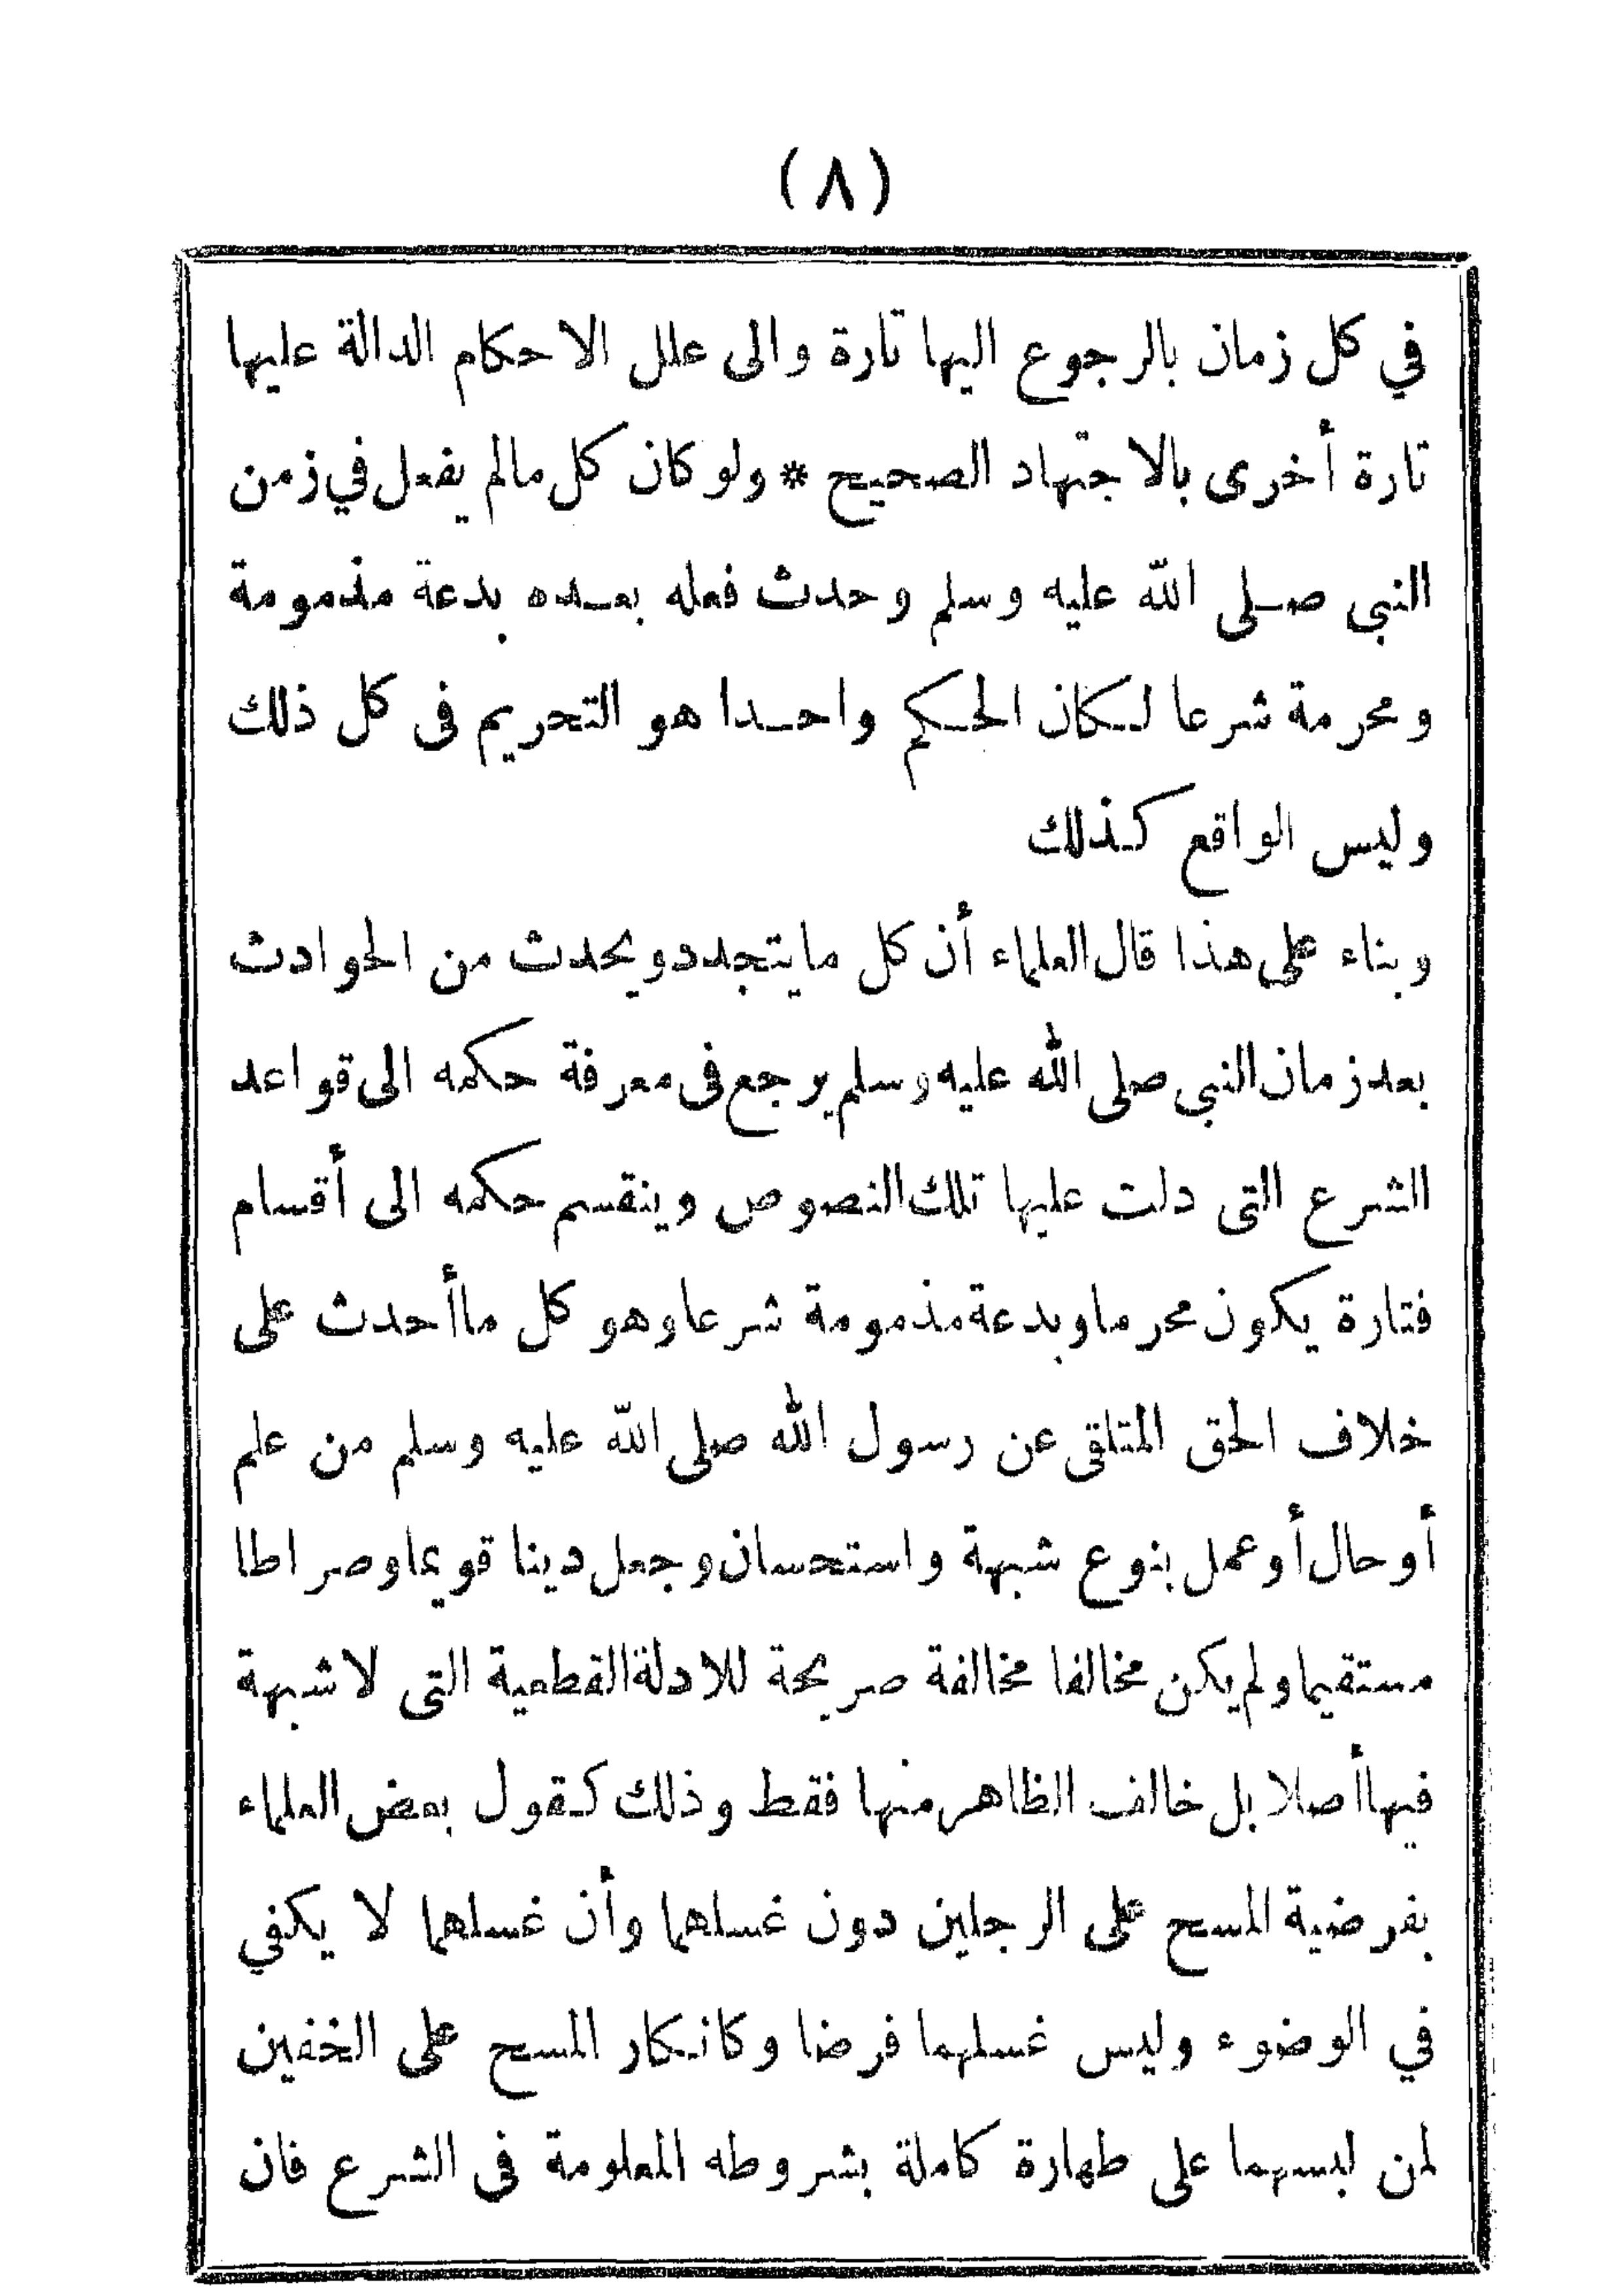 (٨)
في كل زمان بالرجوع اليها تارة والى علل الاحكام الدالة عليها
تارة أخرى بالاجتهاد الصحيح * ولو كان كل مالم يفعل في زمن
النبى صلى الله عليه وسلم وحدث فعله بعده بدعة مذمومة
ومحرمة شرعا لكان الحكم واحدا هو التحريم فى كل ذلك
وليس الواقع كذلك
وبناء على هذا قال العلماء أن كل ما يتجدد ويحدث من الحوادث
بعد زمان النبى صلى الله عليه وسلم يرجع فى معرفة حكمه الى قواعد
الشرع التى دلت عليها تلك النصوص وينقسم حكمه الى أقسام
فتارة يكون محرما وبدعة مذمومة شرعا وهو كل ما أحدث على
خلاف الحق المتلقى عن رسول الله صلى الله عليه وسلم من علم
أو حال أو عمل بنوع شبهة واستحسان وجعل دينا قويما وصراطا
مستقيما ولم يكن مخالفا مخالفة صريحة للادلة القطعية التى لا شبهة
فيها أصلا بل خالف الظاهر منها فقط وذلك كقول بعض العلماء
بفرضية المسح على الرجلين دون غسلهما وأن غسلهما لا يكفي
في الوضوء وليس غسلهما فرضا وكانكار المسح على الخفين
لمن لبسهما على طهارة كاملة بشروطه المعلومة فى الشرع فان